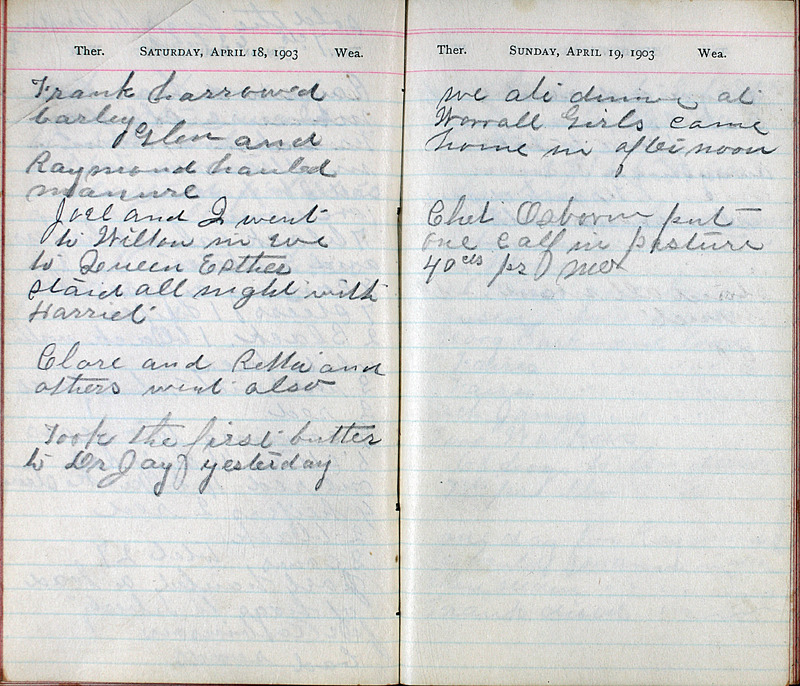 Ther. SATURDAY, APRIL 18, 1903 Wea.
Frank harrowed
barley Glen and
Raymond hauled
manure
Joel and I went
to Wilton in eve
to Queen Esther
staid all night with
Harriet
Clare and Retta and
others went also
Took the first butter
to Dr Jay yesterday
Ther. SUNDAY, APRIL 19, 1903 Wea.
we ate dinner at
Worrall Girls came
home in afternoon
Chet Osborn put
one calf in pasture
40 cts pr mo